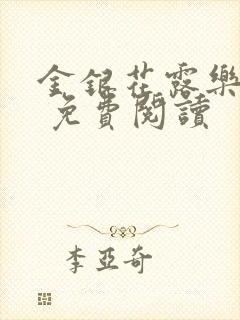 金銀花露樂
免費閱讀
李亞奇